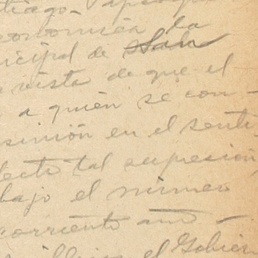 económica la
icipal de San
vista de que el
a quién se con-
sinión en el senti-
fecto tal supresión,
bajo el número
corriente año -
el Gobier